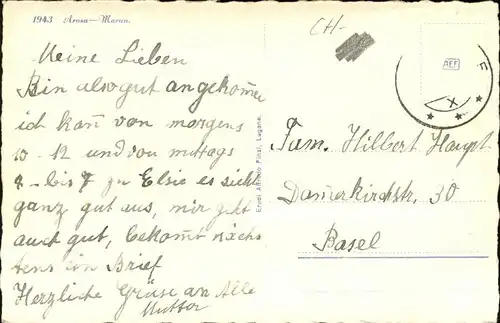 1943 Arosa—Maran.
CH-
Meine Lieben
Bin also gut angekomme
ich kan von morgens
10 - 12 und von mittags
2 - bis 7 zu Elsie es sieht
ganz gut aus, mir geht
auch gut, bekomt nächs
tens ein Brief
Herzliche Grüse an Alle
Mutter
Fam. Hilbert Haupt
Damerkirchstr. 30
Basel
Eredi Alfredo Finzi, Lugano.
X